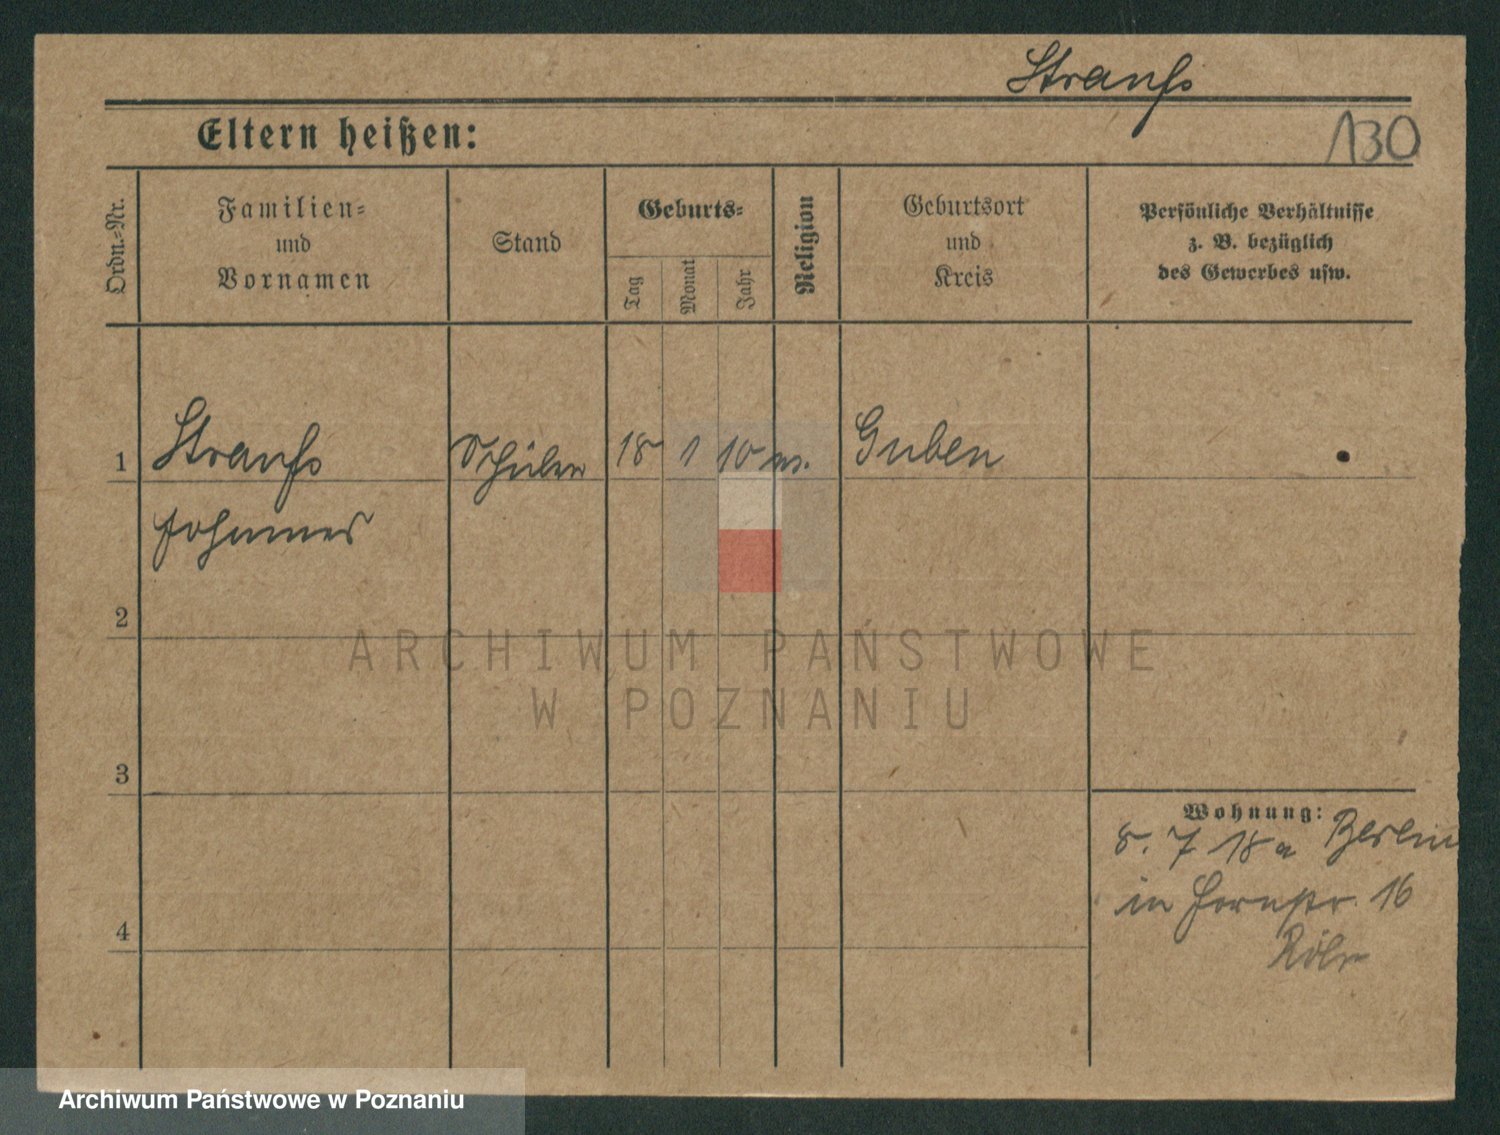 Strauß
Eltern heißen:
130
Ordn.-Nr.
Familien-
und
Vornamen
Stand
Geburts-
Tag
Monat
Jahr
Religion
Geburtsort
und
Kreis
Persönliche Verhältnisse
z. B. bezüglich
des Gewerbes usw.
1 Strauß Schüler 18 1 10 Guben
Johannes
2
3
4
Wohnung:
8. 7 18 a Berlin
in 16
ARCHIWUM PAŃSTWOWE
W POZNANIU
Archiwum Państwowe w Poznaniu